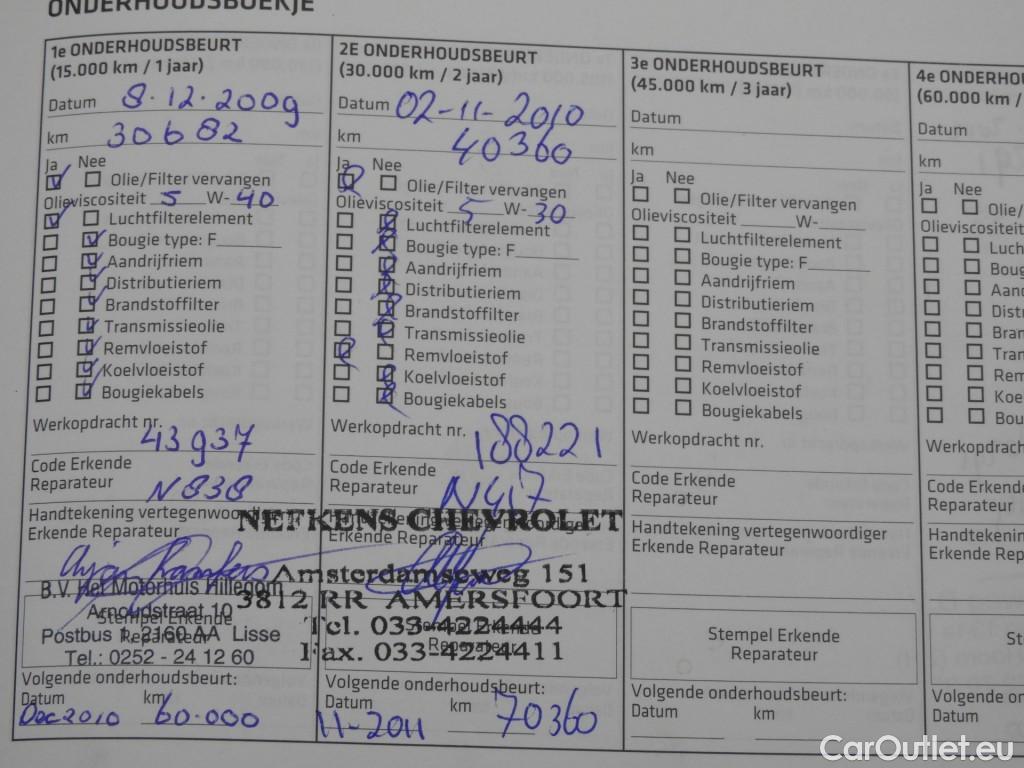 ONDERHOUDSBOEKJE
1e ONDERHOUDSBEURT
(15.000 km / 1 jaar)
Datum 8.12.2009
km 30682
Ja Nee
Olie/Filter vervangen
Olieviscositeit 5 W- 40
Luchtfilterelement
Bougie type: F
Aandrijfriem
Distributieriem
Brandstoffilter
Transmissieolie
Remvloeistof
Koelvloeistof
Bougiekabels
Werkopdracht nr.
43937
Code Erkende
Reparateur N838
Handtekening vertegenwoordiger
Erkende Reparateur
B.V. Het Motorhuis Hillegom
Arnoudstraat 10
Stempel Erkende
Reparateur
Postbus 1, 2160 AA Lisse
Tel.: 0252 - 24 12 60
Volgende onderhoudsbeurt:
Datum km
Dec 2010 60.000
2E ONDERHOUDSBEURT
(30.000 km / 2 jaar)
Datum 02-11-2010
km 40360
Ja Nee
Olie/Filter vervangen
Olieviscositeit 5 W- 30
Luchtfilterelement
Bougie type: F
Aandrijfriem
Distributieriem
Brandstoffilter
Transmissieolie
Remvloeistof
Koelvloeistof
Bougiekabels
Werkopdracht nr. 188221
Code Erkende
Reparateur N417
NEFKENS CHEVROLET
Handtekening vertegenwoordiger
Erkende Reparateur
Amsterdamseweg 151
3812 RR AMERSFOORT
Tel. 033-4224444
Stempel Erkende
Reparateur
Fax. 033-4224411
Volgende onderhoudsbeurt:
Datum km
11-2011 70360
3e ONDERHOUDSBEURT
(45.000 km / 3 jaar)
Datum
km
Ja Nee
Olie/Filter vervangen
Olieviscositeit W-
Luchtfilterelement
Bougie type: F
Aandrijfriem
Distributieriem
Brandstoffilter
Transmissieolie
Remvloeistof
Koelvloeistof
Bougiekabels
Werkopdracht nr.
Code Erkende
Reparateur
Handtekening vertegenwoordiger
Erkende Reparateur
Stempel Erkende
Reparateur
Volgende onderhoudsbeurt:
Datum km
4e ONDERHOU
(60.000 km /
Datum
km
Ja Nee
Olie/
Olieviscositeit
Luch
Boug
Aand
Distri
Brand
Tran
Rem
Koe
Bou
Werkopdracht
Code Erkende
Reparateur
Handtekening
Erkende Rep
St
Volgende on
Datum
CarOutlet.eu